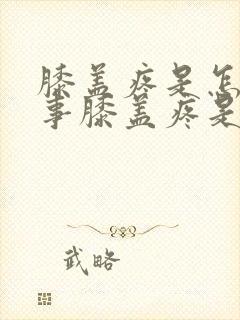 膝盖疼是怎
事膝盖疼是
武略